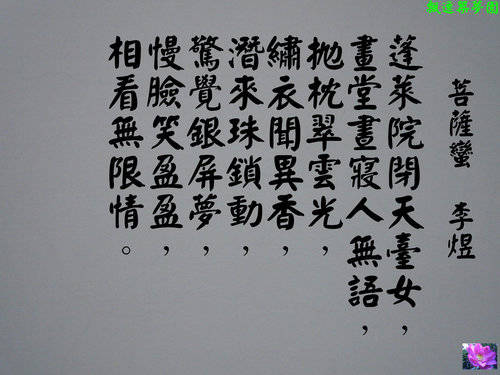 築夢園
菩薩蠻　李煜
蓬萊院閉天臺女，
畫堂畫寢人無語，
拋枕翠雲光，
繡衣聞異香，
潛來珠鎖動，
驚覺銀屏夢，
慢臉笑盈盈，
相看無限情。